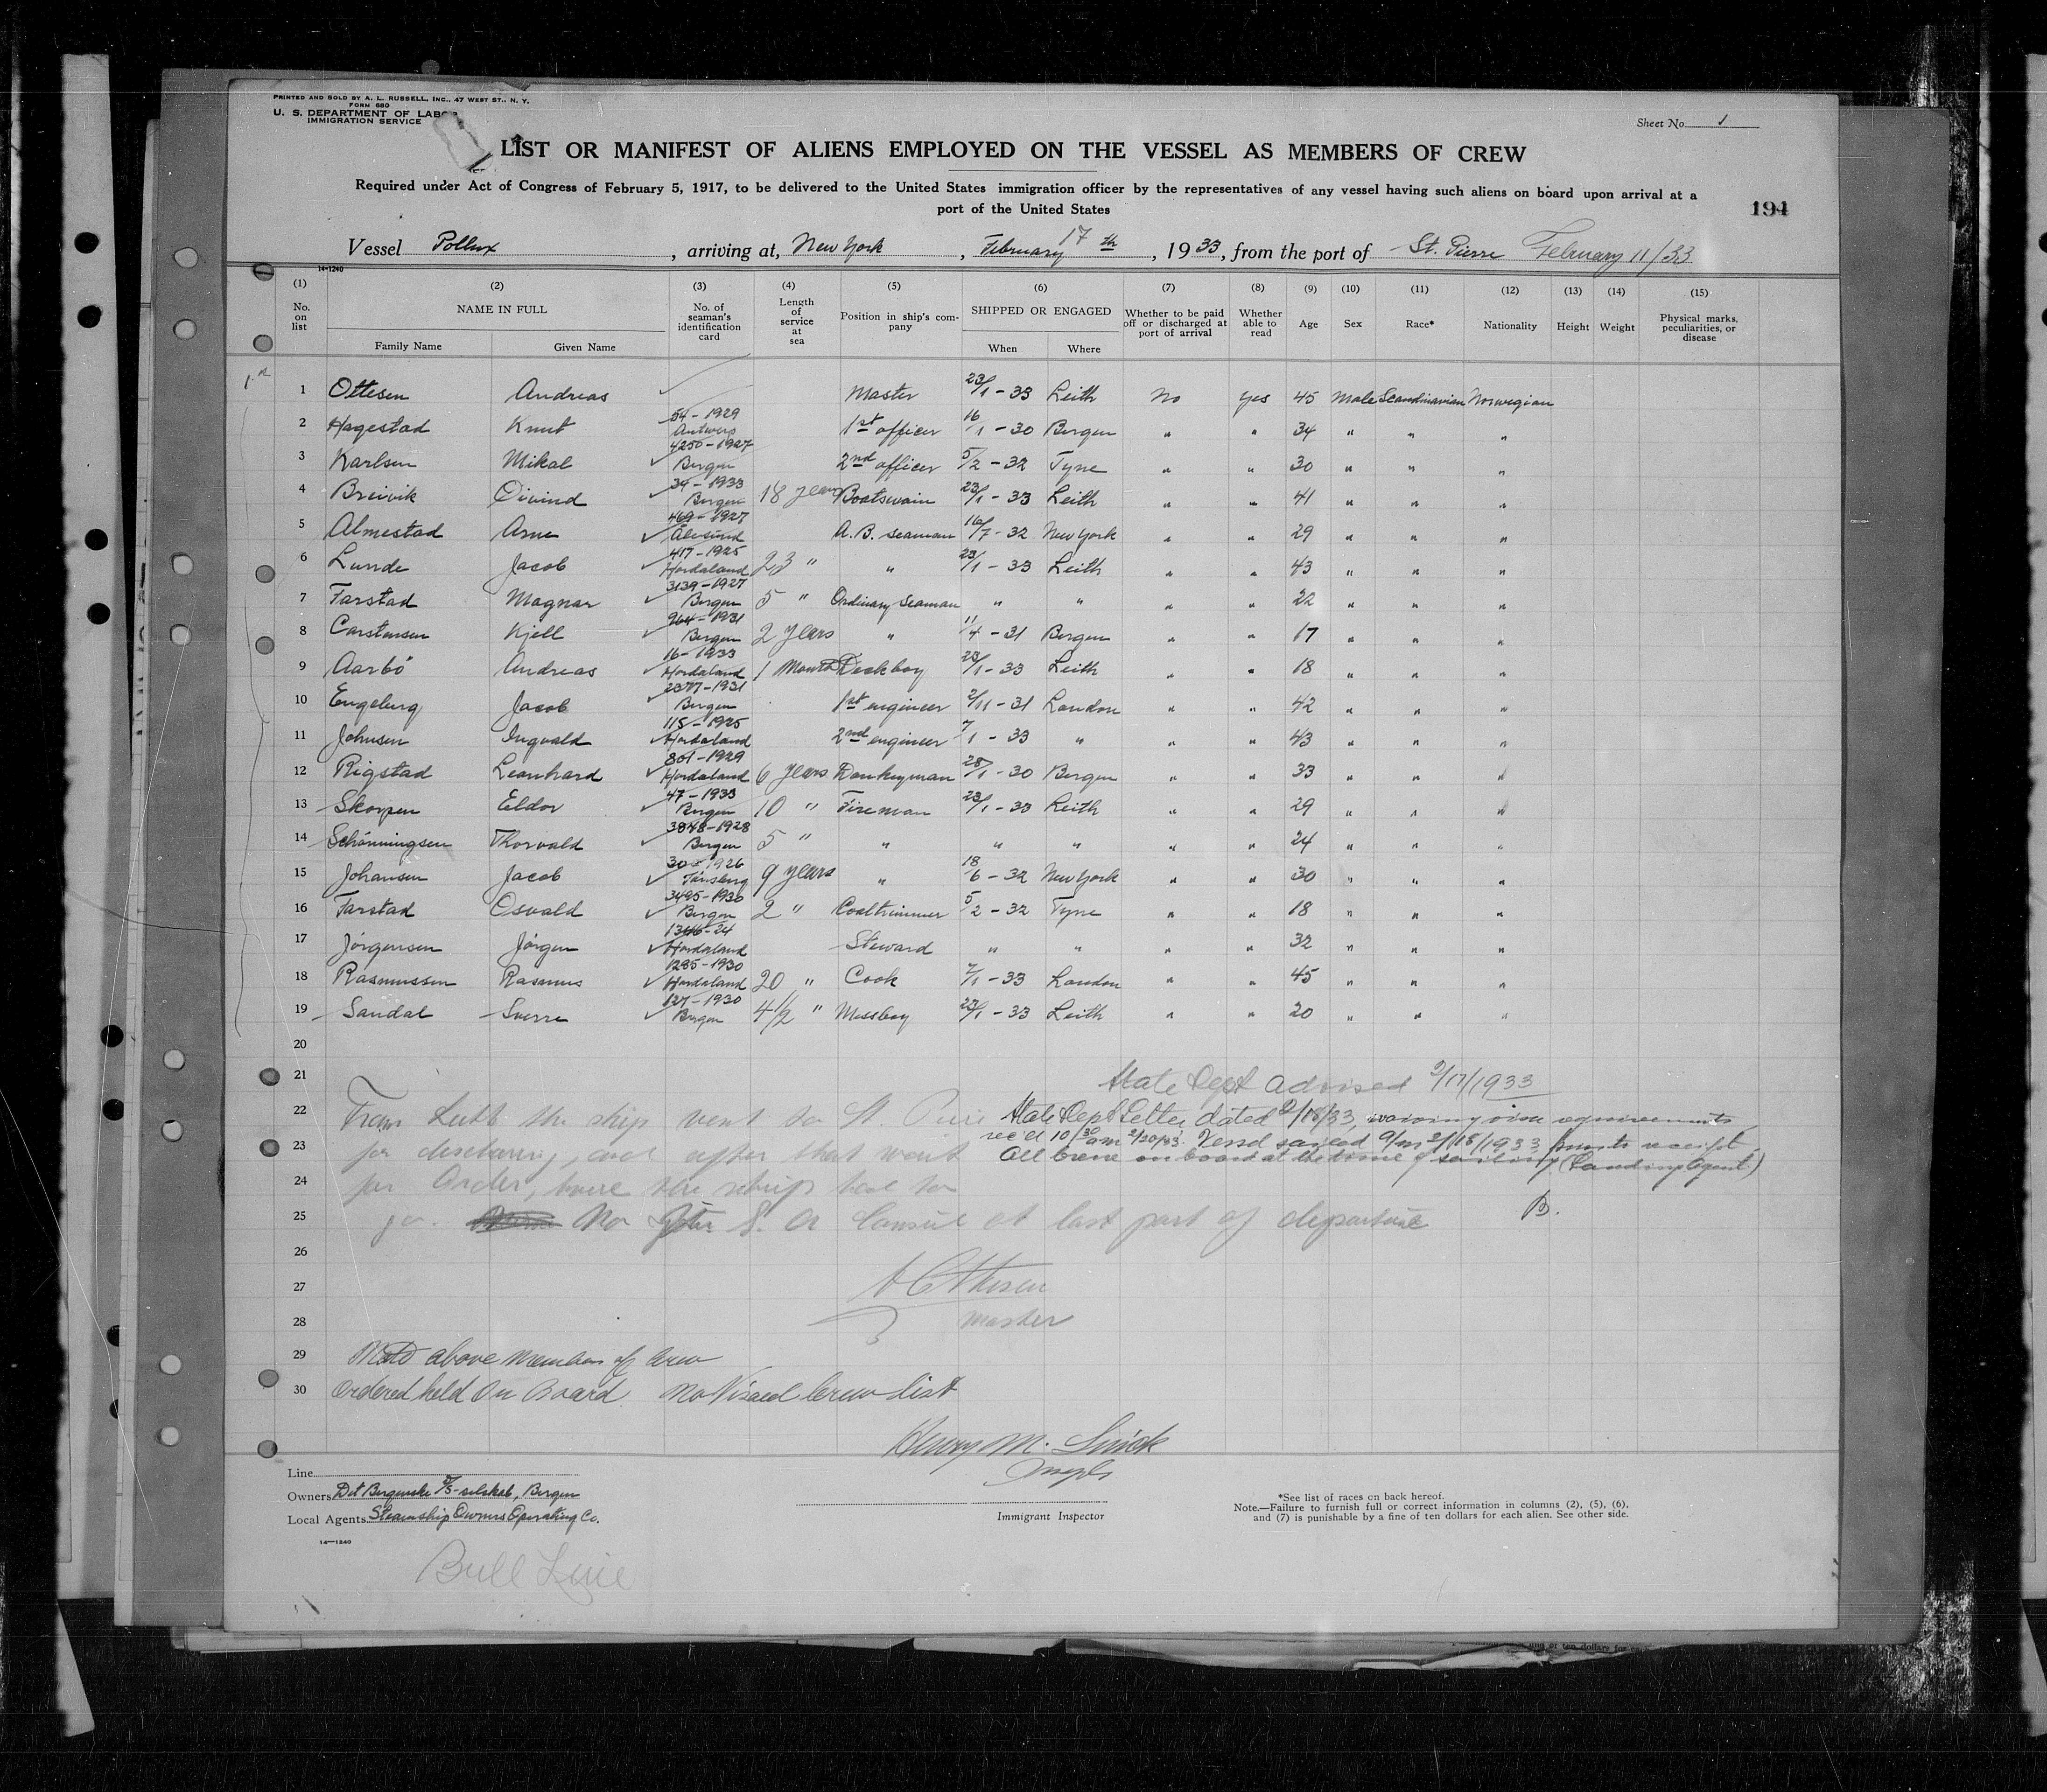 PRINTED AND SOLD BY A. L. RUSSELL, INC., 47 WEST ST., N. Y.
FORM 680
U. S. DEPARTMENT OF LABOR
IMMIGRATION SERVICE
Sheet No. 1
LIST OR MANIFEST OF ALIENS EMPLOYED ON THE VESSEL AS MEMBERS OF CREW
Required under Act of Congress of February 5, 1917, to be delivered to the United States immigration officer by the representatives of any vessel having such aliens on board upon arrival at a
port of the United States
194
Vessel Pollux, arriving at, New York, February 17th, 1933, from the port of St. Pierre February 11/33
14-1240
(1) (2) (3) (4) (5) (6) (7) (8) (9) (10) (11) (12) (13) (14) (15)
No. on list NAME IN FULL No. of seaman's identification card Length of service at sea Position in ship's company SHIPPED OR ENGAGED Whether to be paid off or discharged at port of arrival Whether able to read Age Sex Race* Nationality Height Weight Physical marks, peculiarities, or disease
Family Name Given Name When Where
1 Ottesen Andreas Master 23/1-33 Leith No Yes 45 Male Scandinavian Norwegian
2 Hagestad Knut 54-1929 Antwerp 1st officer 16/1-30 Bergen " " 34 " " "
3 Karlsen Mikal 4250-1927 Bergen 2nd officer 5/2-32 Tyne " " 30 " " "
4 Breivik Oivind 34-1933 Bergen 18 years Boatswain 23/1-33 Leith " " 41 " " "
5 Almestad Arne 469-1927 Ålesund A.B. Seaman 16/7-32 New York " " 29 " " "
6 Lunde Jacob 417-1925 Hordaland 23 " " 23/1-33 Leith " " 43 " " "
7 Farstad Magnar 3139-1927 Bergen 5 " Ordinary Seaman " " " " 22 " " "
8 Carstensen Kjell 264-1931 Bergen 2 years " 11/4-31 Bergen " " 17 " " "
9 Aarbö Andreas 16-1933 Hordaland 1 Month Deckboy 23/1-33 Leith " " 18 " " "
10 Engeburg Jacob 2377-1931 Bergen 1st engineer 2/11-31 London " " 42 " " "
11 Johnsen Ingvald 115-1925 Hordaland 2nd engineer 7/1-33 " " " 43 " " "
12 Rigstad Leonhard 801-1929 Hordaland 6 years Donkeyman 28/1-30 Bergen " " 33 " " "
13 Skorpen Eldor 47-1933 Bergen 10 " Fireman 23/1-33 Leith " " 29 " " "
14 Schönningsen Thorvald 3848-1928 Bergen 5 " " " " " " 24 " " "
15 Johansen Jacob 30-1926 Tönsberg 9 years " 18/6-32 New York " " 30 " " "
16 Farstad Osvald 3495-1930 Bergen 2 " Coaltrimmer 5/2-32 Tyne " " 18 " " "
17 Jörgensen Jörgen 1346-24 Hordaland Steward " " " " 32 " " "
18 Rasmussen Rasmus 1295-1930 Hordaland 20 " Cook 7/1-33 London " " 45 " " "
19 Sandal Sverre 127-1930 Bergen 4 1/2 " Messboy 23/1-33 Leith " " 20 " " "
20
21 State Dept advised 2/17/1933
22 From Leith the ship went to St. Pierre State Dept Letter dated 2/18/33, waiving visa requirements
rec'd 10/30 am 2/20/33. Vessel sailed 2/18/1933
23 for discharing, and after that wait All crew on board at the time of sailing (Landing Agent)
24 for Order, where the ships had to
25 go. No S. A Consul at last port of departure B.
26
27 A Ottesen
28 Master
29 above members of crew
30 ordered held on Board. No Visaed Crew List
Henry M.
Line
Owners Det Bergenske D/S-selskab, Bergen
Local Agents Steamship Owners Operating Co.
14-1240
Immigrant Inspector
*See list of races on back hereof.
Note.—Failure to furnish full or correct information in columns (2), (5), (6),
and (7) is punishable by a fine of ten dollars for each alien. See other side.
Bull Line